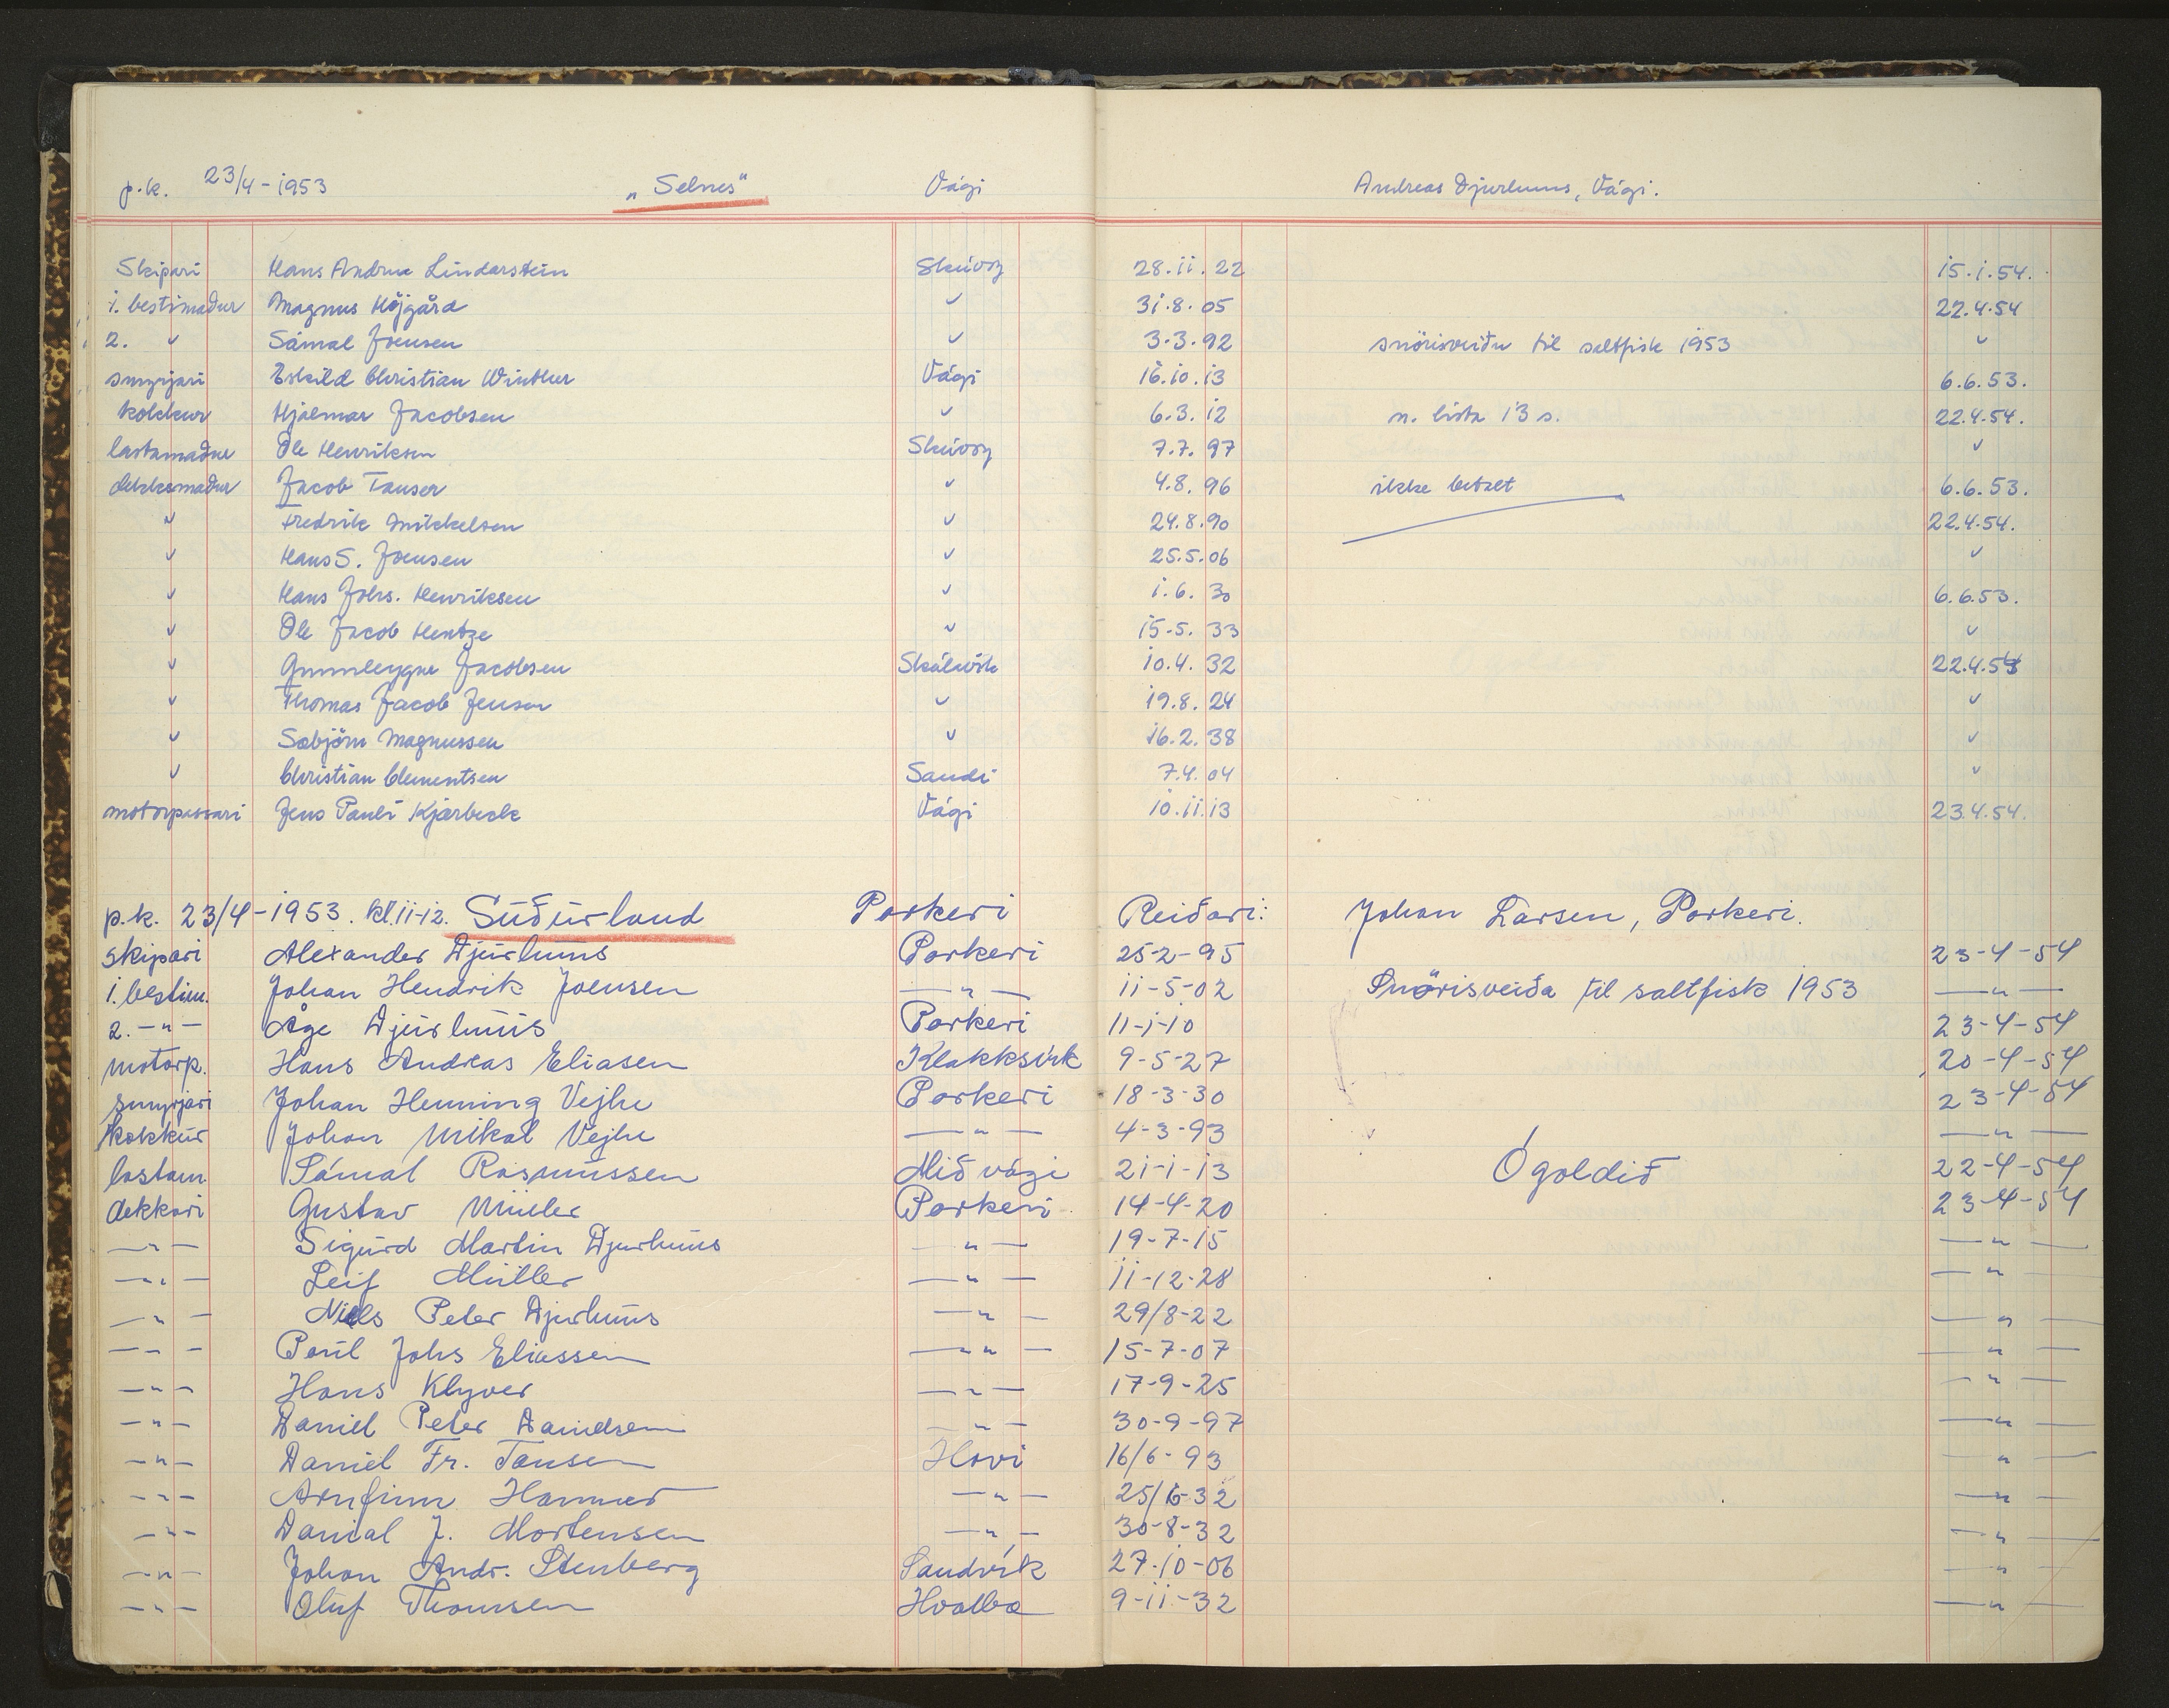 p.k. 23/4-1953 „Selnes“ Vági Andreas Djurhuus, Vági.
Skipari Hans Andrew Lindarstein Skúvoy 28.11.22 15.1.54.
1. bestimaður Magnus Højgård ✓ 31.8.05 22.4.54
2. ✓ Sámal Joensen ✓ 3.3.92 snörisveiðu til saltfisk 1953 ✓
smyrjari Eskild Christian Winther Vági 16.10.13 6.6.53.
kokkur Hjalmar Jacobsen ✓ 6.3.12 n. lista 13 s. 22.4.54.
lastamaður Ole Henriksen Skúvoy 7.7.97 ✓
dekksmaður Jacob Tauser ✓ 4.8.96 ikke betalt 6.6.53.
✓ Fredrik Mikkelsen ✓ 24.8.90 22.4.54.
✓ Hans S. Joensen ✓ 25.5.06 ✓
✓ Hans Johs. Henriksen ✓ 1.6.30 6.6.53.
✓ Ole Jacob Hentze ✓ 15-5.33 ✓
✓ Gunnleygur Jacobsen Skálavík 10.4.32 22.4.54
✓ Thomas Jacob Jensen ✓ 19.8.24 ✓
✓ Sæbjörn Magnussen ✓ 16.2.38 ✓
✓ Christian Clementsen Sandi 7.4.04 ✓
motorpassari Jens Pauli Kjærbeck Vági 10.11.13 23.4.54.
p.k. 23/4-1953. kl. 11-12. Suðurland Porkeri Reiðari: Johan Larsen, Porkeri.
skipari Alexander Djurhuus Porkeri 25-2-95 23-4-54
1. bestim. Johan Hendrik Joensen —"— 11-5-02 Snørisveiða til saltfisk 1953 —"—
2. —"— Åge Djurhuus Porkeri 11-1-10 23-4-54
motorp. Hans Andreas Eliasen Klakksvík 9-5-27 20-4-54
smyrjari Johan Henning Vejhe Porkeri 18-3-30 23-4-54
kokkur Johan Mikal Vejhe —"— 4-3-93 —"—
lastam. Sámal Rasmussen Miðvági 21-1-13 Ógoldið 22-4-54
dekkari Gustav Müller Porkeri 14-4-20 23-4-54
—"— Sigurd Martin Djurhuus —"— 19-7-15 —"—
—"— Leif Müller —"— 11-12-28 —"—
—"— Niels Peter Djurhuus —"— 29/8-22 —"—
—"— Poul Johs Eliassen —"— 15-7-07 —"—
—"— Hans Klyver —"— 17-9-25 —"—
—"— Daniel Peter Danielsen —"— 30-9-97 —"—
—"— Daniel Fr. Tausen Hovi 16/6-93 —"—
—"— Arnfinn Hammer —"— 25/6-32 —"—
—"— Danial J. Mortensen —"— 30-8-32 —"—
—"— Johan Andr. Stenberg Sandvík 27-10-06 —"—
—"— Oluf Thomsen Hvalba 9-11-32 —"—